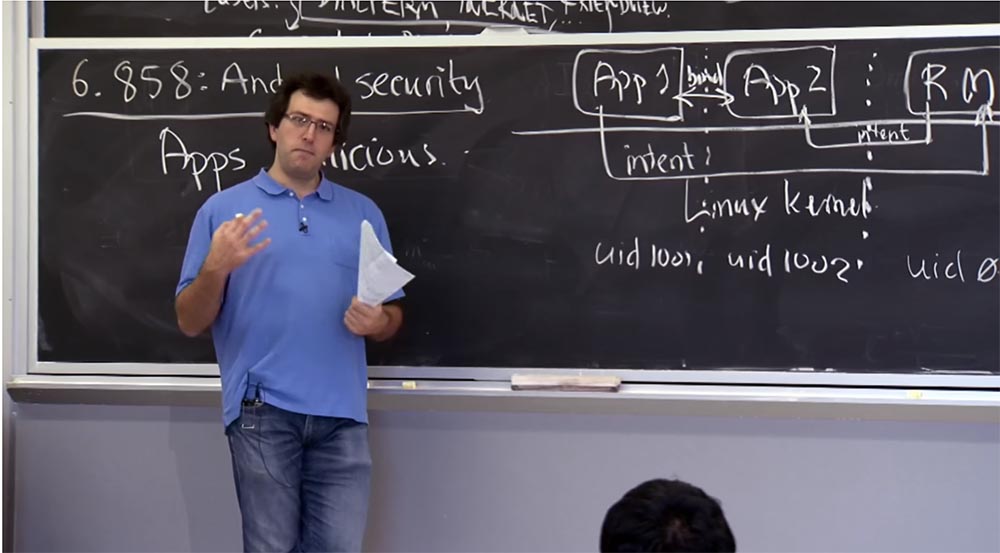 Labels: DIALPERM, INTERNET, FRIENDVIEW.
6.858: And d security
Apps licious.
App 1
App 2
RM
intent
intent
Linux kernel
uid 1001, uid 1002
uid 0